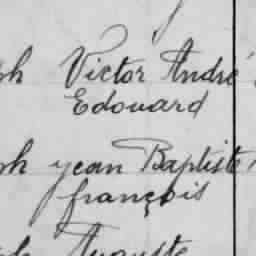 ph Victor André
Edouard
ph yean Baptiste
françois
ph Auguste